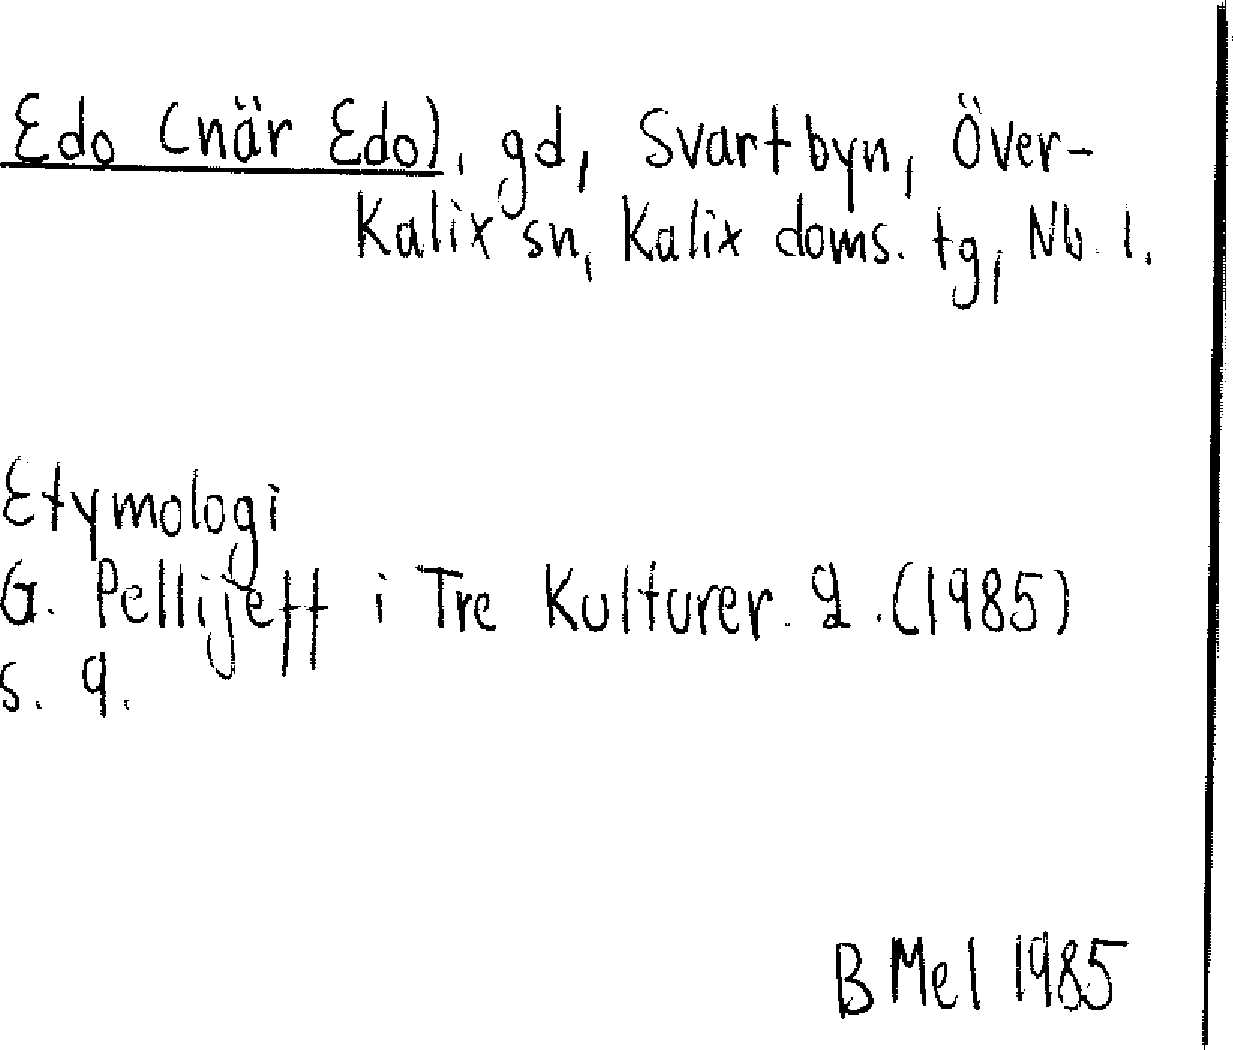 Edo (när Edo), gd, Svartbyn, Över-
Kalix sn, Kalix doms. tg, Nb. l.
Etymologi
G. Pellijeff i Tre Kulturer. 2. (1985)
s. 9.
B Mel 1985